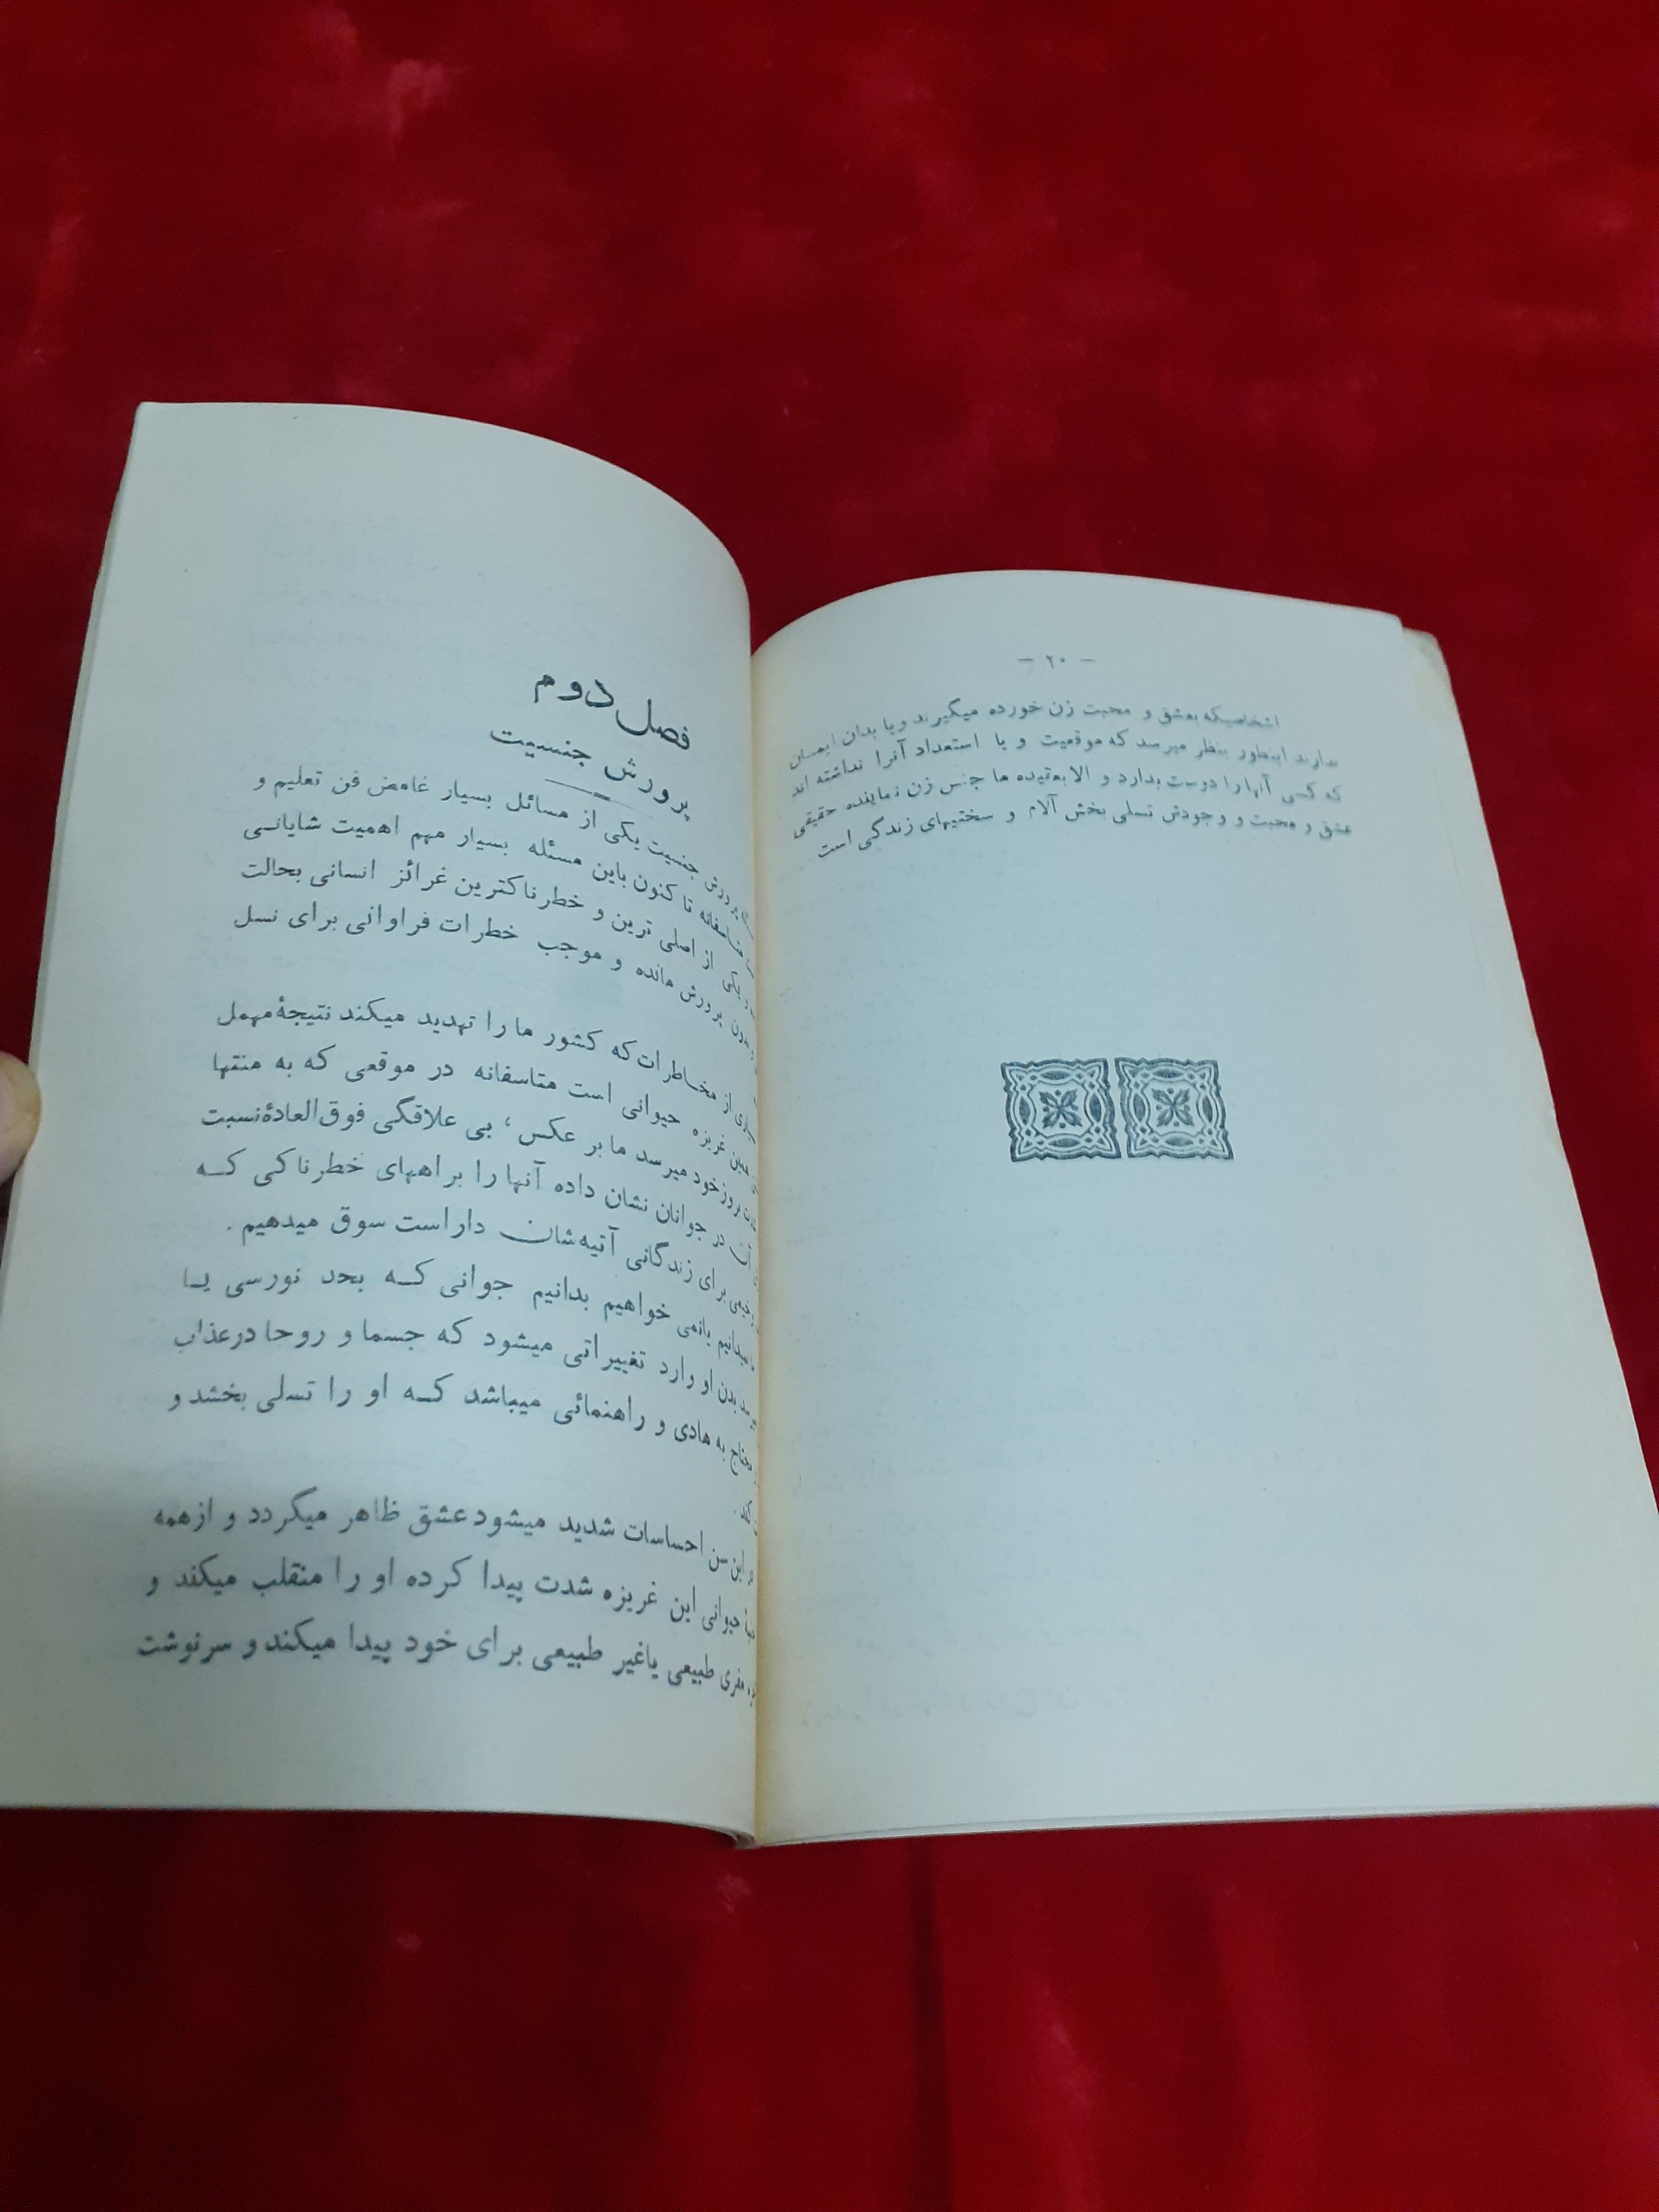 - ۲۰ -
اشخاصیکه بعشق و محبت زن خورده میگیرند و یا بدان ایمان
ندارند اینطور بنظر میرسد که موقعیت و یا استعداد آنرا نداشته اند
که کسی آنها را دوست بدارد و الا بعقیده ما جنس زن نماینده حقیقی
عشق و محبت و وجودش تسلی بخش آلام و سختیهای زندگی است .
فصل دوم
پرورش جنسیت
پرورش جنسیت یکی از مسائل بسیار غامض فن تعلیم و
متاسفانه تا کنون باین مسئله بسیار مهم اهمیت شایانی
یکی از اصلی ترین و خطرناکترین غرائز انسانی بحالت
پرورش مانده و موجب خطرات فراوانی برای نسل
از مخاطرات که کشور ما را تهدید میکند نتیجهٔ مهمل
همین غریزه حیوانی است متاسفانه در موقعی که به منتها
بروز خود میرسد ما بر عکس ، بی علاقگی فوق العادهٔ نسبت
آن در جوانان نشان داده آنها را براههای خطرناکی که
برای زندگانی آتیه شان داراست سوق میدهیم .
یا نمی خواهیم بدانیم جوانی که بحد نورسی یا
بدن او وارد تغییراتی میشود که جسما و روحا در عذاب
به هادی و راهنمائی میباشد که او را تسلی بخشد و
کند .
این سن احساسات شدید میشود عشق ظاهر میگردد و از همه
حیوانی این غریزه شدت پیدا کرده او را منقلب میکند و
مفری طبیعی یا غیر طبیعی برای خود پیدا میکند و سرنوشت